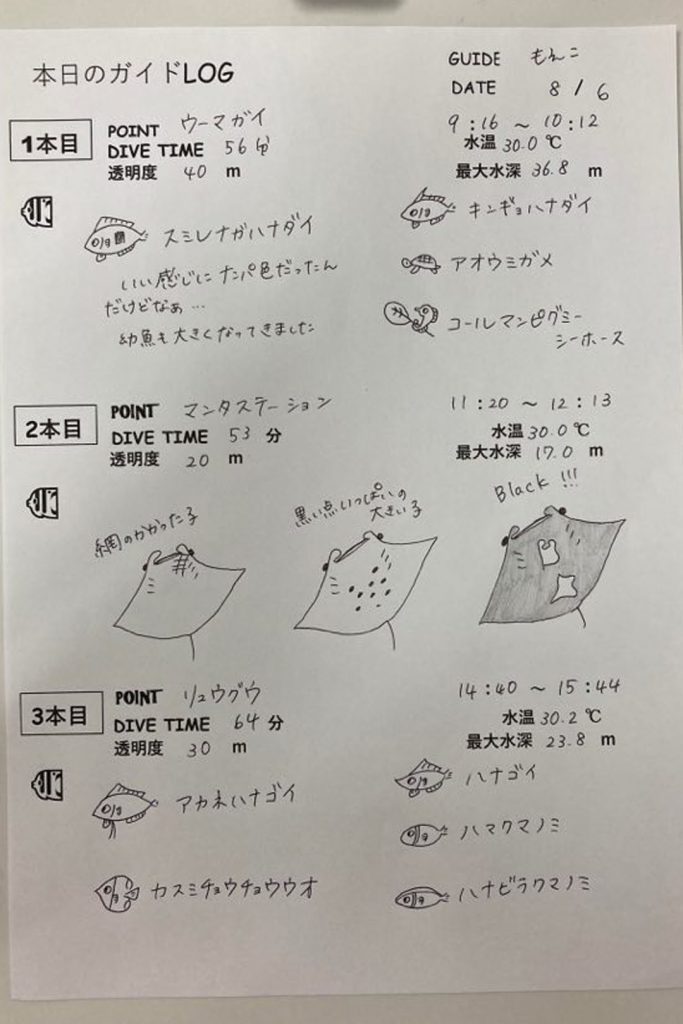 本日のガイドLOG
GUIDE もんこ
DATE 8 / 6
1本目
POINT ウーマガイ
9:16 ~ 10:12
DIVE TIME 56分
水温 30.0 ℃
透明度 40 m
最大水深 36.8 m
スミレナガハナダイ
キンギョハナダイ
いい感じにナンパ色だったん
だけどなぁ…
アオウミガメ
幼魚も大きくなってきました
コールマンピグミー
シーホース
2本目
POINT マンタステーション
11:20 ~ 12:13
DIVE TIME 53 分
水温 30.0 ℃
透明度 20 m
最大水深 17.0 m
網のかかった子
黒い点いっぱいの
大きい子
Black !!!
3本目
POINT リュウグウ
14:40 ~ 15:44
DIVE TIME 64 分
水温 30.2 ℃
透明度 30 m
最大水深 23.8 m
アカネハナゴイ
ハナゴイ
ハマクマノミ
カスミチョウチョウウオ
ハナビラクマノミ